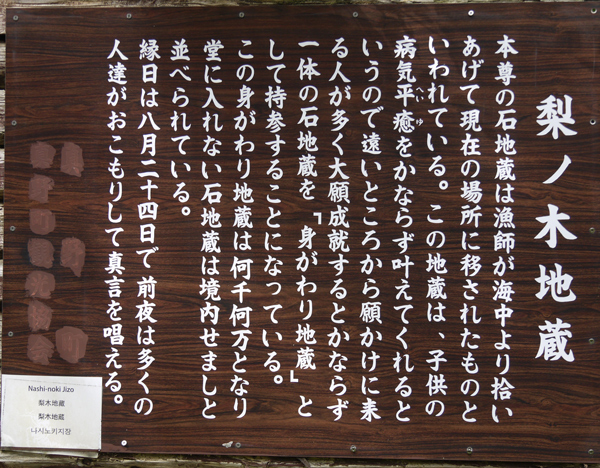 梨ノ木地蔵
本尊の石地蔵は漁師が海中より拾い
あげて現在の場所に移されたものと
いわれている。この地蔵は、子供の
病気平癒をかならず叶えてくれると
へいゆ
いうので遠いところから願かけに来
る人が多く大願成就するとかならず
一体の石地蔵を「身がわり地蔵」と
して持参することになっている。
この身がわり地蔵は何千何万となり
堂に入れない石地蔵は境内せましと
並べられている。
縁日は八月二十四日で前夜は多くの
人達がおこもりして真言を唱える。
Nashi-noki Jizo
梨木地蔵
梨木地藏
나시노키지장